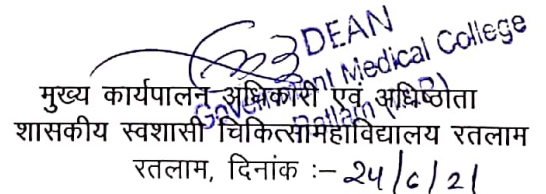 DEAN
Government Medical College
Ratlam (M.P.)
मुख्य कार्यपालन अधिकारी एवं अधिष्ठाता
शासकीय स्वशासी चिकित्सामहाविद्यालय रतलाम
रतलाम, दिनांक :– 24/6/21